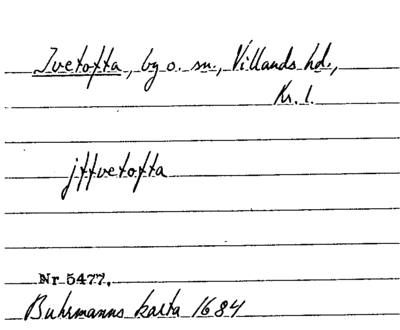 Ivetofta, by o. sn., Villands hd.,
Kr. l.
jffvetofta
Nr 5477.
Buhrmanns karta 1684